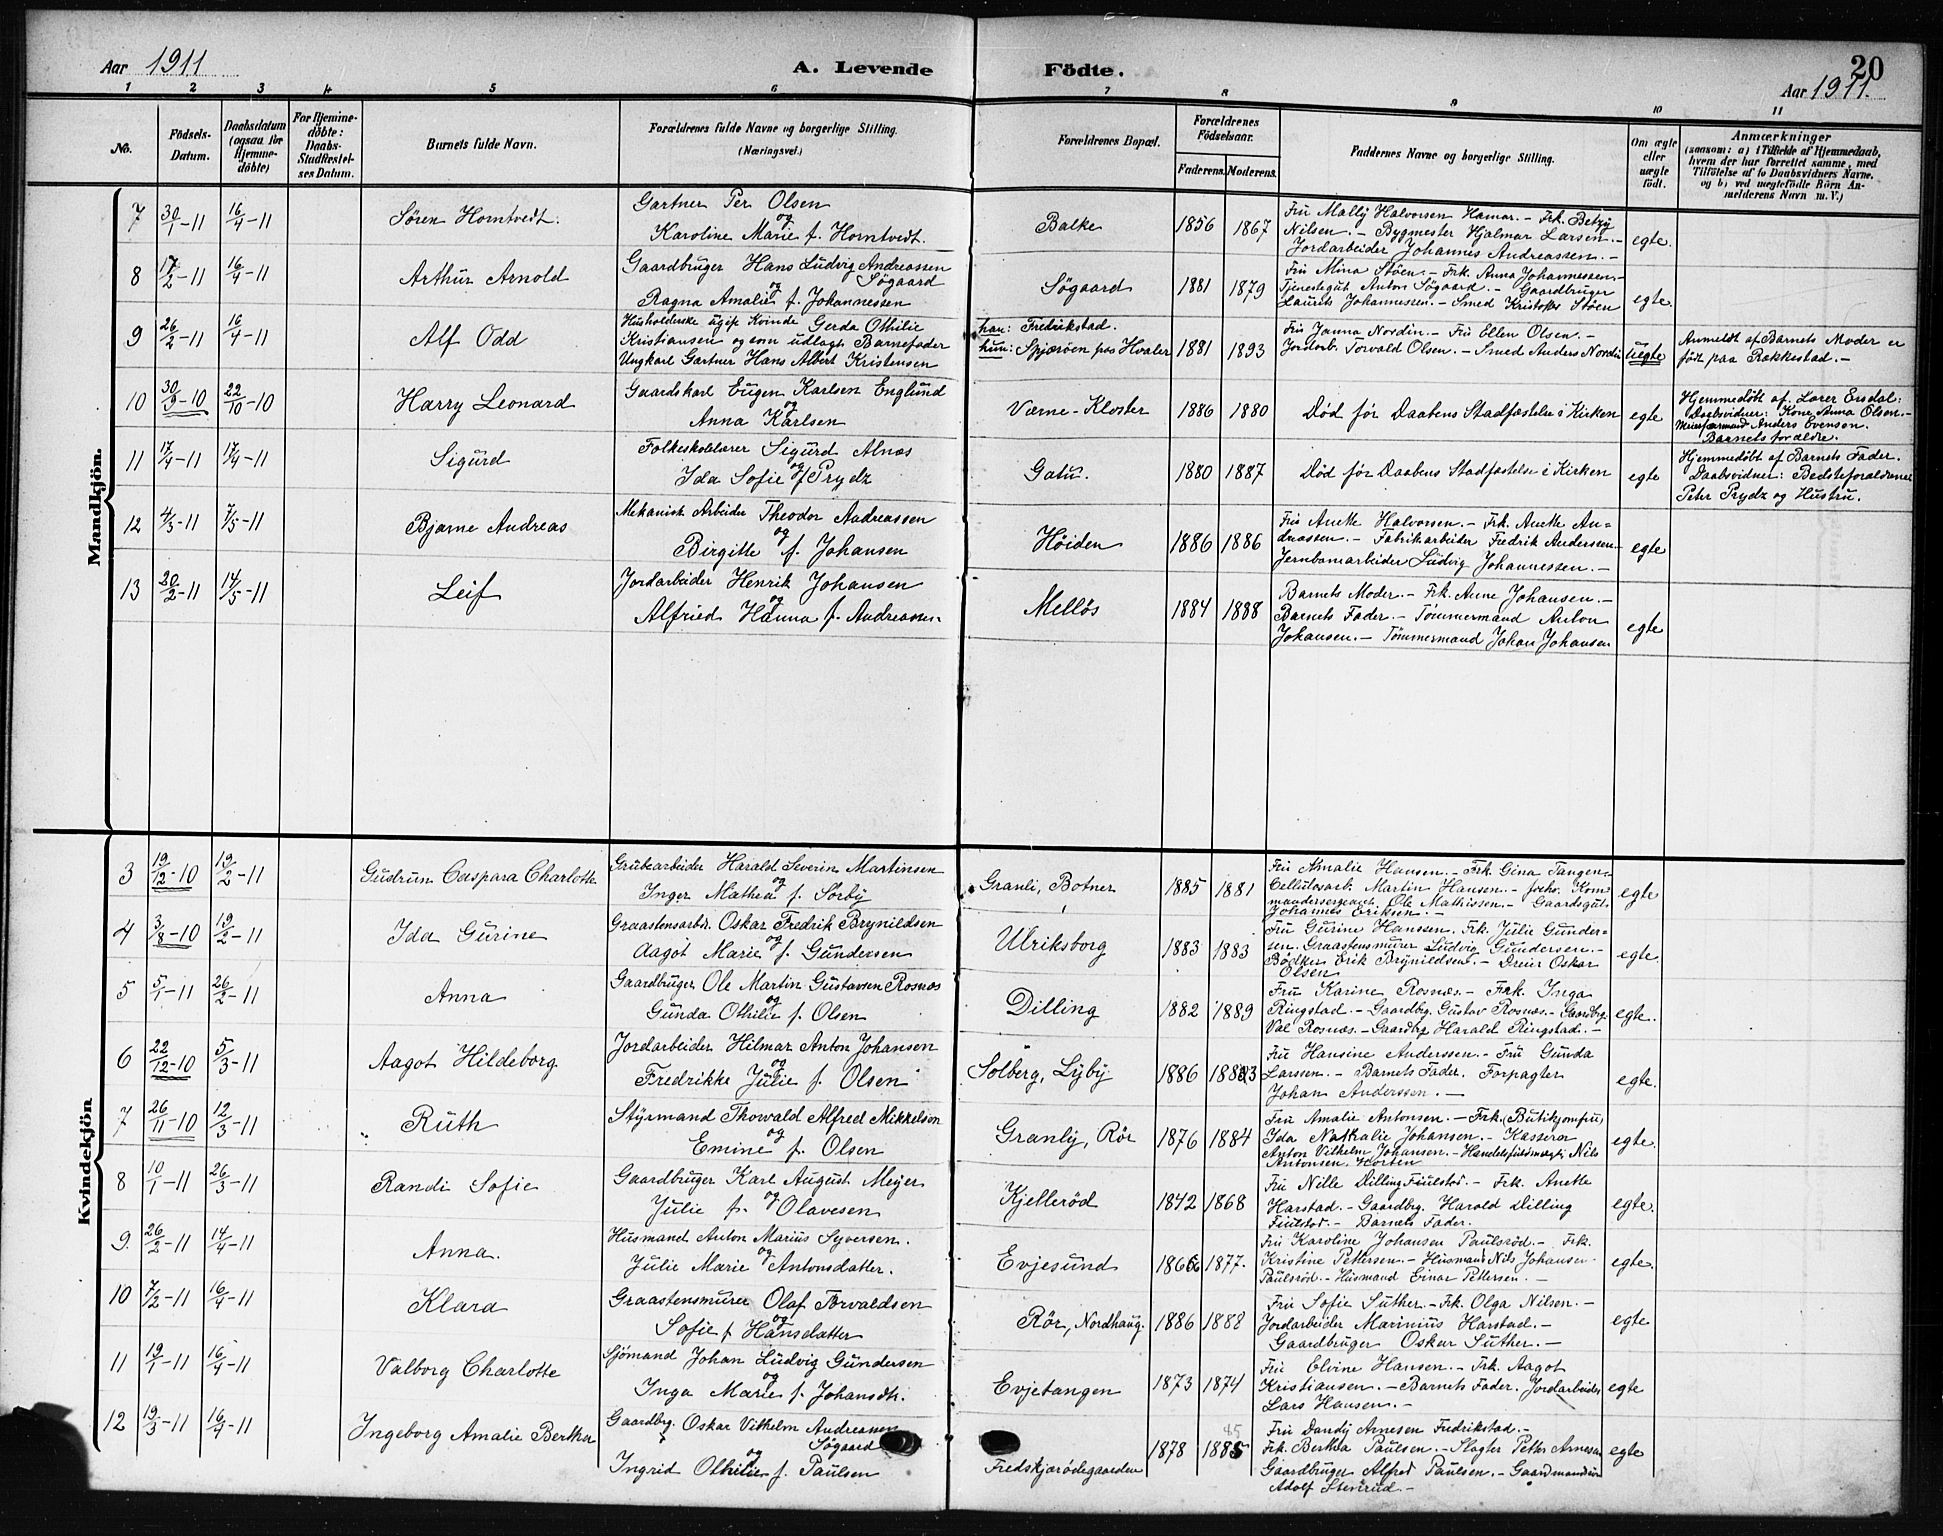 Aar 1911
A. Levende
Födte.
20
Aar 1911.
1 2 3 4 5 6 7 8 9 10 11
No.
Födsels-
Datum.
Daabsdatum
(ogsaa for
Hjemme-
döbte)
For Hjemme-
döbte:
Daabs-
Stadfæstel-
ses Datum.
Barnets fulde Navn.
Forældrenes fulde Navne og borgerlige Stilling.
(Næringsvei.)
Forældrenes Bopæl.
Forældrenes
Födselsaar.
Faderens. Moderens.
Faddernes Navne og borgerlige Stilling.
Om ægte
eller
uægte
födt.
Anmærkninger
(saasom: a) i Tilfælde af Hjemmedaab,
hvem der har forrettet samme, med
Tilföielse af to Daabsvidners Navne.
og b) ved uægtefödte Börn An-
melderens Navn m. V.)
Mandkjön.
7 30/1-11 16/4-11 Søren Horntvedt.
Gartner Per Olsen
og
Karoline Marie f. Horntvedt.
Balke 1856 1867
Fru Mally Halvorsen Hamar. - Frk. Betzy
Nilsen. - Bygmester Hjalmar Larsen. -
Jordarbeider Johannes Andreassen. -
egte.
8 17/2-11 16/4-11 Arthur Arnold
Gaardbruger Hans Ludvig Andreassen
Søgaard
og
Ragna Amalie f. Johannessen
Søgaard 1881 1879
Fru Mina Støen. - Frk. Anna Johannessen. -
Tjenestegut Anton Søgaard. - Gaardbruger
Laurits Johannessen. - Smed Kristoffer Støen
egte.
9 26/2-11 16/4-11 Alf Odd
Husholderske ugift Kvinde Gerda Othilie
Kristiansen og som udlagt Barnefader
Ungkarl Gartner Hans Albert Kristensen
han: Fredrikstad.
hun: Spjærøen paa Hvaler 1881 1893
Fru Janna Nordin. - Fru Ellen Olsen. -
Jordarb. Torvald Olsen. - Smed Anders Nordin
uegte
Anmeldt af Barnets Moder er
født paa Rakkestad. -
10 30/9-10 22/10-10 Harry Leonard
Gaardskarl Eugen Karlsen Englund
og
Anna Karlsen
Værne-Kloster 1886 1880
Død før Daabens Stadfæstelse i Kirken
egte
Hjemmedøbt af Lærer Ersdal:
Daabsvidner: Kone Anna Olsen. -
Anders Evensen.
Barnets forældre.
11 17/4-11 17/4-11 Sigurd
Folkeskolelærer Sigurd Alnæs
og
Ida Sofie f. Prydz
Gatu. 1880 1887
Død før Daabens Stadfæstelse i Kirken
egte
Hjemmedøbt af Barnets Fader.
Daabsvidner: Bedsteforældrene
Petr Prydz og Hustru.
12 4/3-11 7/5-11 Bjarne Andreas
Mekanisk Arbeider Theodor Andreassen
og
Birgitte f. Johansen
Høiden 1886 1886
Fru Anette Halvorsen. - Frk. Anette An=
dreassen. - Fabrikarbeider Fredrik Anderssen. -
Jernbanearbeider Ludvig Johannessen. -
egte
13 20/2-11 14/5-11 Leif
Jordarbeider Henrik Johansen
og
Alfried Hanna f. Andreassen
Melløs 1884 1888
Barnets Moder. - Frk. Anne Johansen. -
Barnets Fader. - Tømmermand Anton
Johansen. - Tømmermand Johan Johansen
egte
Kvindekjön
3 19/12-10 19/2-11 Gudrun Caspara Charlotte
Grubearbeider Harald Severin Martinsen
og
Inger Mathea f. Sørby
Granli, Botner 1885 1881
Fru Amalie Hansen. - Frk. Gina Tangen. -
Cellulosarb. Martin Hansen. - forhv. Kom=
mandersergeant Ole Mathissen. - Gaardsgut
Johannes Eriksen. -
egte
4 3/8-10 19/2-11 Ida Gurine
Graastensarbr. Oskar Fredrik Brynildsen
og
Aagot Marie f. Gundersen
Ulriksborg 1883 1883
Fru Gurine Hanssen. Frk. Julie Gunder=
sen. Graastensmurer Ludvig Gundersen. -
Bødker Erik Brynildsen. - Dreier Oskar
Olsen
egte.
5 5/1-11 26/2-11 Anna
Gaardbruger Ole Martin Gustavsen Rosnæs
og
Gunda Othilie f. Olsen
Dilling 1882 1889
Fru Karine Rosnæs. - Frk. Inga
Ringstad. - Gaardbg. Gustav Rosnæs. - Gaardbg.
Val Rosnæs. - Gaardbg Harald Ringstad. -
egte.
6 22/12-10 5/3-11 Aagot Hildeborg
Jordarbeider Hilmar Anton Johansen
og
Fredrikke Julie f. Olsen
Solberg, Lyby 1886 1883
Fru Hansine Anderssen. - Fru Gunda
Larssen. - Barnets Fader. Forpagter
Johan Anderssen. -
egte.
7 26/11-10 12/3-11 Ruth
Styrmand Thorvald Alfred Mikkelsen
og
Emine f. Olsen
Granly, Rør 1876 1884
Fru Amalie Antonsen. - Frk. (Butikjomfru)
Ida Nathalie Johansen. - Kasserer
Anton Vilhelm Johansen. - Handelsfuldmægt. Nils
Antonsen, Horten
egte.
8 10/1-11 26/3-11 Randi Sofie
Gaardbruger Karl August Meyer
og
Julie f. Olavesen
Kjellerød 1842 1868
Fru Nille Dilling Fiulstad. - Frk. Anette
Harstad. - Gaardbrg. Harald Dilling
Fiulstad. - Barnets Fader.
egte.
9. 26/2-11 14/4-11 Anna.
Husmand Anton Marius Syversen.
og
Julie Marie Antonsdatter.
Evjesund 1866 1877.
Fru Karoline Johansen Paulsrød. - Frk.
Kristine Pettersen. - Husmand Nils Johansen
Paulsrød. - Husmand Einar Pettersen. -
egte.
10 7/2-11 16/4-11 Klara
Graastensmurer Olaf Torvaldsen
og
Sofie f Hansdatter
Rör, Nordhaug. 1886 1888
Fru Sofie Suther. - Frk. Olga Nilsen. -
Jordarbeider Marinius Harstad. -
Gaardbruger Oskar Suther. -
egte
11 19/1-11 16/4-11 Valborg Charlotte
Sjømand Johan Ludvig Gundersen
og
Inga Marie f. Johansdtr.
Evjetangen 1873 1874
Fru Elvine Hansen. - Frk. Aagot
Kristiansen. - Barnets Fader. Jordarbeider
Lars Hansen. -
egte
12 19/3-11 16/4-11 Ingeborg Amalie Berthea
Gaardbrg. Oskar Vilhelm Andreassen
Søgaard
og
Ingrid Othilie f. Paulsen
Fredskjærødegaarden 1878 1885
85
Fru Dandy Arnesen Fredrikstad. -
Frk. Berthea Paulsen. - Slagter Petter Arnesen
Gaardbruger Alfred Paulsen. - Gaardmandssøn
Adolf Stenrud. -
egte